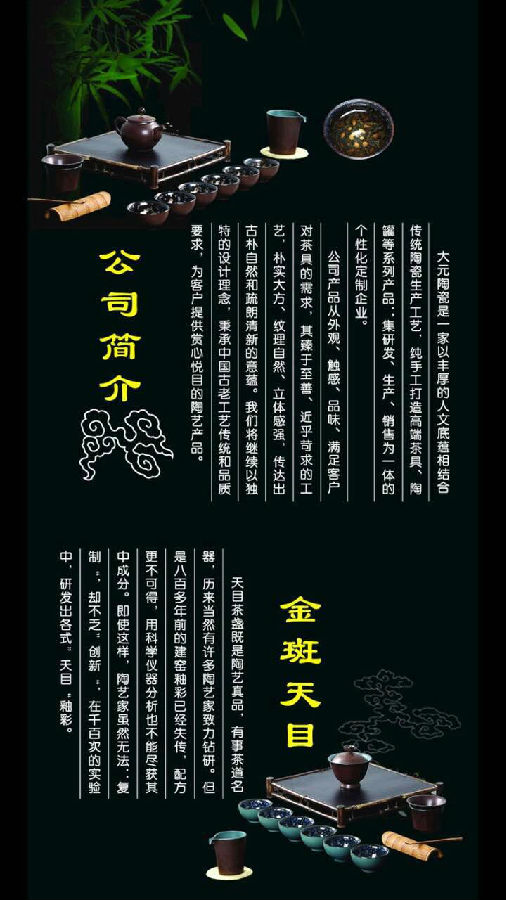 公司简介
大元陶瓷是一家以丰厚的人文底蕴相结合
传统陶瓷生产工艺，纯手工打造高端茶具、陶
罐等系列产品；集研发、生产、销售为一体的
个性化定制企业。
公司产品从外观、触感、品味、满足客户
对茶具的需求，其臻于至善、近乎苛求的工
艺，朴实大方、纹理自然、立体感强，传达出
古朴自然和疏朗清新的意蕴。我们将继续以独
特的设计理念，秉承中国古老工艺传统和品质
要求，为客户提供赏心悦目的陶艺产品。
金斑天目
天目茶盏既是陶艺真品，有事茶道名
器，历来当然有许多陶艺家致力钻研。但
是八百多年前的建窑釉彩已经失传，配方
更不可得，用科学仪器分析也不能尽获其
中成分。即使这样，陶艺家虽然无法：复
制“，却不乏”创新“，在千百次的实验
中，研发出各式”天目“釉彩。